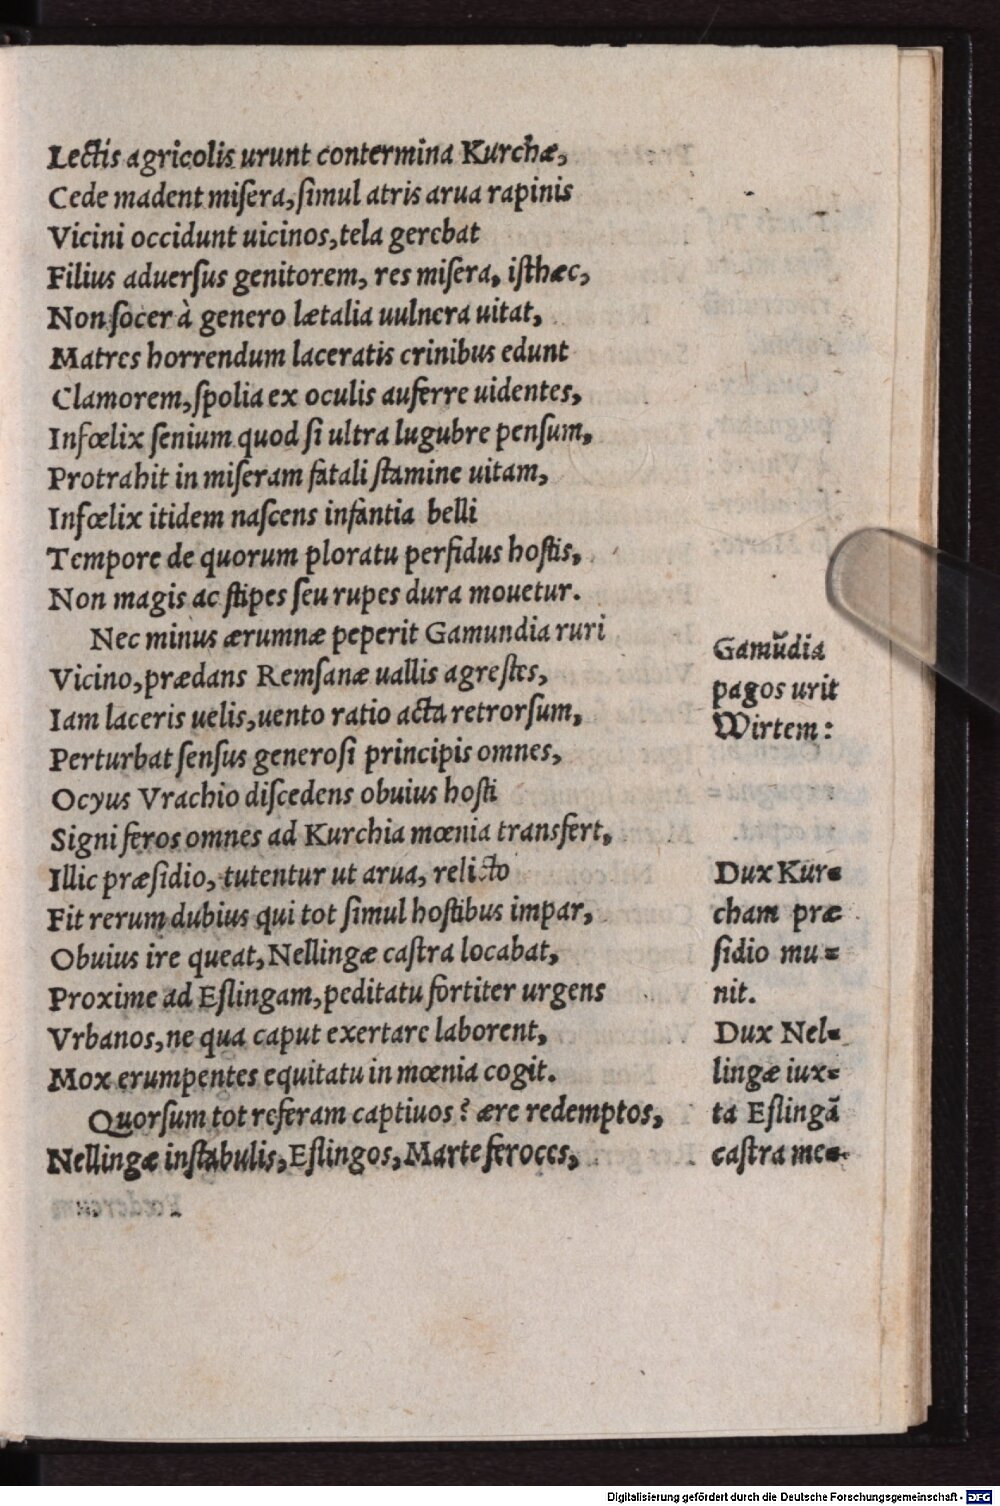 Lectis agricolis urunt contermina Kurchæ,
Cede madent miſera, ſimul atris arua rapinis
Vicini occidunt uicinos, tela gerebat
Filius aduerſus genitorem, res miſera, iſthæc,
Non ſocer à genero lætalia uulnera uitat,
Matres horrendum laceratis crinibus edunt
Clamorem, ſpolia ex oculis auferre uidentes,
Infœlix ſenium quod ſi ultra lugubre penſum,
Protrahit in miſeram fatali ſtamine uitam,
Infœlix itidem naſcens infantia belli
Tempore de quorum ploratu perfidus hoſtis,
Non magis ac ſtipes ſeu rupes dura mouetur.
Nec minus ærumnæ peperit Gamundia ruri
Vicino, prædans Remſanæ uallis agreſtes,
Iam laceris uelis, uento ratio acta retrorſum,
Perturbat ſenſus generoſi principis omnes,
Ocyus Vrachio diſcedens obuius hoſti
Signiferos omnes ad Kurchia mœnia transfert,
Illic præſidio, tutentur ut arua, relicto
Fit rerum dubius qui tot ſimul hoſtibus impar,
Obuius ire queat, Nellingæ caſtra locabat,
Proxime ad Eſlingam, peditatu fortiter urgens
Vrbanos, ne qua caput exertare laborent,
Mox erumpentes equitatu in mœnia cogit.
Quorſum tot referam captiuos? ære redemptos,
Nellingæ in ſtabulis, Eſlingos, Marte feroces,
Gamūdia
pagos urit
Wirtem:
Dux Kur=
cham præ
ſidio mu=
nit.
Dux Nel=
lingæ iux=
ta Eſlingā
caſtra me=
Digitalisierung gefördert durch die Deutsche Forschungsgemeinschaft - DFG